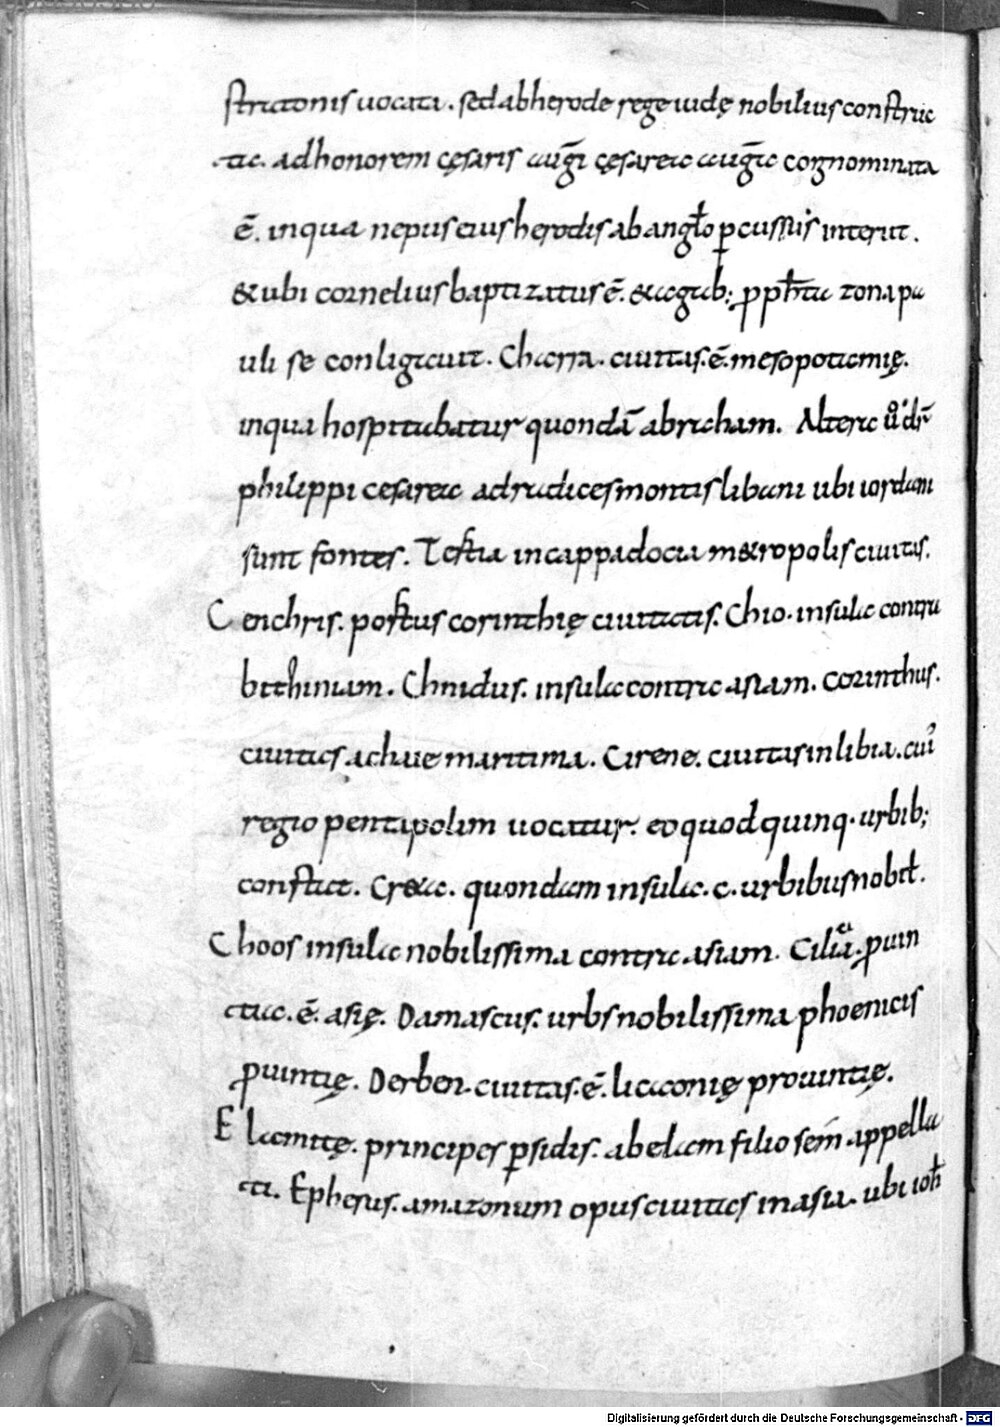 stratonis uocata. sed ab herode rege iudę nobilius constructa
ta. ad honorem cęsaris aug̅i cęsarea aug̅ta cognominata
ē. in qua nepus eius herodis ab anglo ꝑcussus interiit.
& ubi cornelius baptizatus ē. & agab; ꝓph̅ta zona pa
uli se conligauit. Charra. ciuitas. ē. mesopotamię.
in qua hospitabatur quondā abraham. Altera u͛ dr̅
philippi cesarea ad radices montis libani ubi iordani
sunt fontes. in cappadocia m&ropolis ciuitas.
Cenchris. portus corinthię ciuitatis. Chio. insula contra
bithiniam. Chnidus. insula contra asiam. corinthus.
ciuitas achaie maritima. Cirene. ciuitas in libia. cui᾿
regio pentapolim uocatur. eo quod quinq. urbib;
constat. Cr&a. quondam insula. c. urbibus nobil̅.
Choos insula nobilissima contra asiam. Cilia. ꝓuin
tia. ē. asię. Damascus. urbs nobilissima phoenicis
ꝓuintię. Derben. ciuitas. ē. licaonię prouintię.
Elamitę. principes ꝑsidis. ab elam filio sem appella
ti. Ephesus. amazonum opus ciuitas in asia. ubi ioh̅
Digitalisierung gefördert durch die Deutsche Forschungsgemeinschaft - DFG